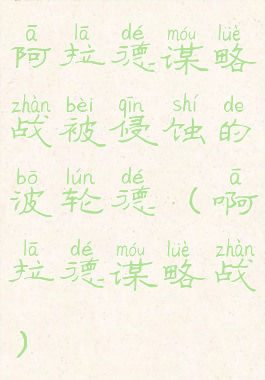 ā lā dé móu lüè
阿拉德谋略
zhàn bèi qīn shí de
战被侵蚀的
bō lún dé ā
波轮德（啊
lā dé móu lüè zhàn
拉德谋略战
）